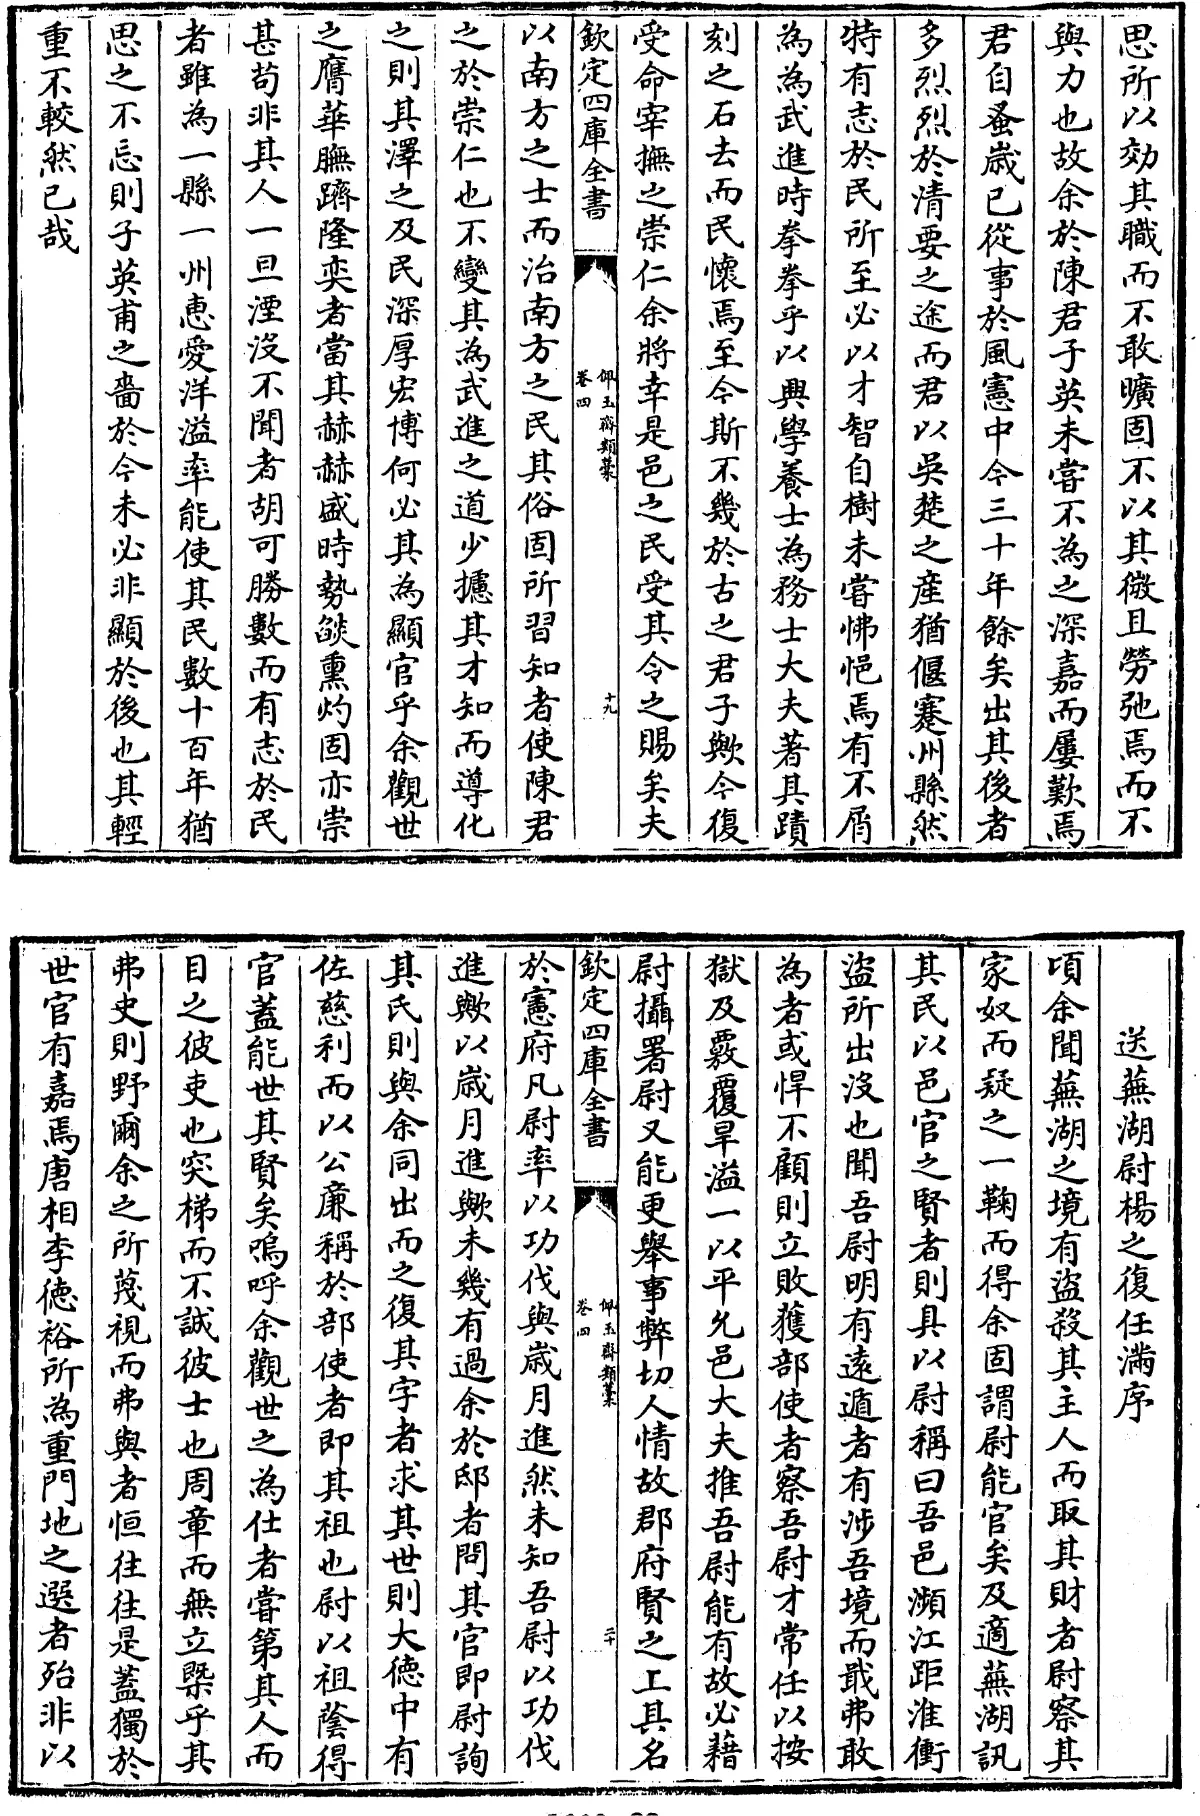 思所以効其職而不敢曠固不以其微且勞弛焉而不
與力也故余於陳君子英未嘗不為之深嘉而屢歎焉
君自蚤歲已從事於風憲中今三十年餘矣出其後者
多烈烈於清要之途而君以吳楚之產猶偃蹇州縣然
特有志於民所至必以才智自樹未嘗怫悒焉有不屑
為為武進時拳拳乎以興學養士為務士大夫著其蹟
刻之石去而民懷焉至今斯不幾於古之君子歟今復
受命宰撫之崇仁余將幸是邑之民受其令之賜矣夫
欽定四庫全書
佩玉齋類藁
卷四
十九
以南方之士而治南方之民其俗固所習知者使陳君
之於崇仁也不變其為武進之道少攄其才知而導化
之則其澤之及民深厚宏博何必其為顯官乎余觀世
之膺華膴躋隆奕者當其赫赫盛時勢燄熏灼固亦崇
甚苟非其人一旦湮沒不聞者胡可勝數而有志於民
者雖為一縣一州惠愛洋溢率能使其民數十百年猶
思之不忘則子英甫之嗇於今未必非顯於後也其輕
重不較然已哉
送蕪湖尉楊之復任滿序
頃余聞蕪湖之境有盜殺其主人而取其財者尉察其
家奴而疑之一鞠而得余固謂尉能官矣及適蕪湖訊
其民以邑官之賢者則具以尉稱曰吾邑瀕江距淮衝
盜所出沒也聞吾尉明有遠遁者有涉吾境而戢弗敢
為者或悍不顧則立敗獲部使者察吾尉才常任以按
獄及覈覆旱溢一以平允邑大夫推吾尉能有故必藉
尉攝署尉又能更舉事弊切人情故郡府賢之工其名
欽定四庫全書
佩玉齋類藁
卷四
二十
於憲府凡尉率以功伐與歲月進然未知吾尉以功伐
進歟以歲月進歟未幾有過余於邸者問其官即尉詢
其氏則與余同出而之復其字者求其世則大德中有
佐慈利而以公廉稱於部使者即其祖也尉以祖蔭得
官蓋能世其賢矣嗚呼余觀世之為仕者嘗第其人而
目之彼吏也突梯而不誠彼士也周章而無立槩乎其
弗史則野爾余之所蔑視而弗與者恒往往是蓋獨於
世官有嘉焉唐相李德裕所為重門地之選者殆非以